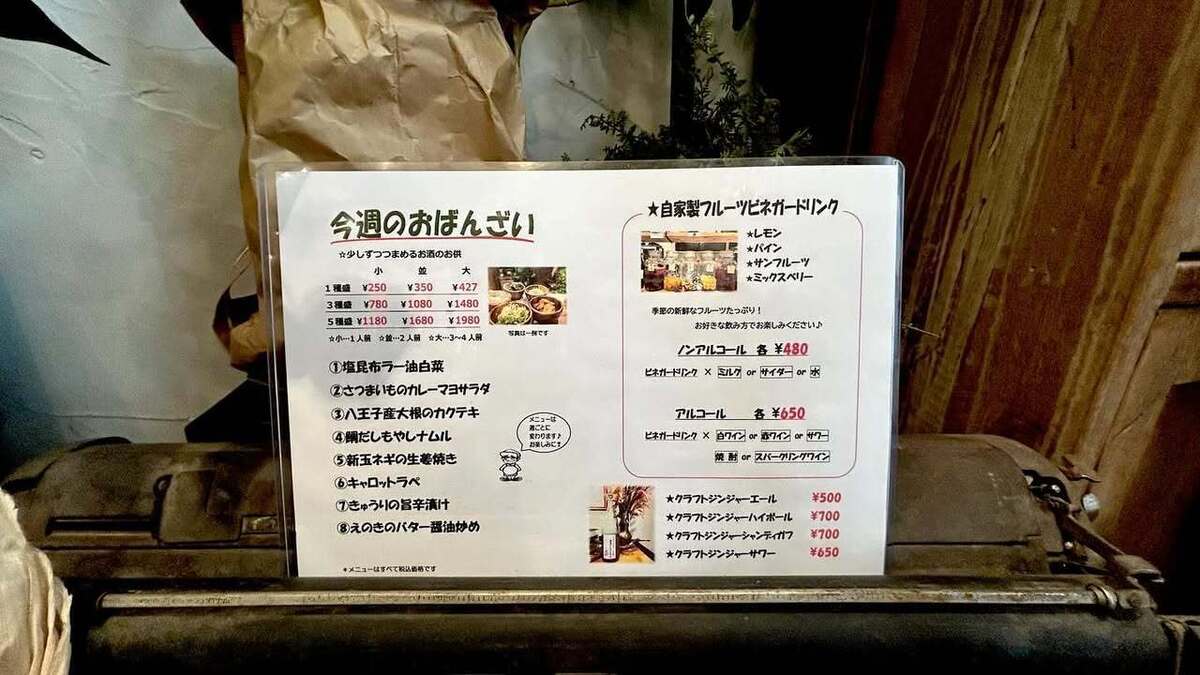 今週のおばんざい
☆少しずつつまめるお酒のお供
小 並 大
1種盛 ¥250 ¥350 ¥427
3種盛 ¥780 ¥1080 ¥1480
5種盛 ¥1180 ¥1680 ¥1980
☆小…1人前 ☆並…2人前 ☆大…3～4人前
写真は一例です
①塩昆布ラー油白菜
②さつまいものカレーマヨサラダ
③八王子産大根のカクテキ
④鯛だしもやしナムル
⑤新玉ネギの生姜焼き
⑥キャロットラペ
⑦きゅうりの旨辛漬け
⑧えのきのバター醤油炒め
メニューは
週ごとに
変わります♪
お楽しみに！
＊メニューはすべて税込価格です
★自家製フルーツビネガードリンク
★レモン
★パイン
★サンフルーツ
★ミックスベリー
季節の新鮮なフルーツたっぷり！
お好きな飲み方でお楽しみください♪
ノンアルコール 各 ¥480
ビネガードリンク × ミルク or サイダー or 水
アルコール 各 ¥650
ビネガードリンク × 白ワイン or 赤ワイン or サワー
焼酎 or スパークリングワイン
★クラフトジンジャーエール ¥500
★クラフトジンジャーハイボール ¥700
★クラフトジンジャーシャンディガフ ¥700
★クラフトジンジャーサワー ¥650